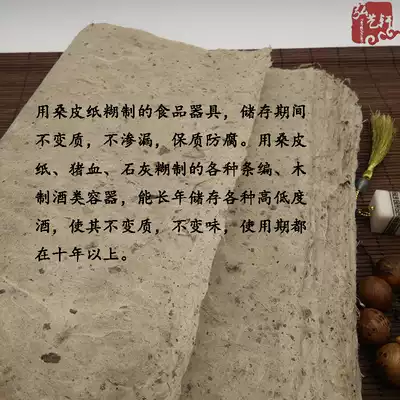 弘艺轩
用桑皮纸糊制的食品器具，储存期间
不变质，不渗漏，保质防腐。用桑皮
纸、猪血、石灰糊制的各种条编、木
制酒类容器，能长年储存各种高低度
酒，使其不变质，不变味，使用期都
在十年以上。